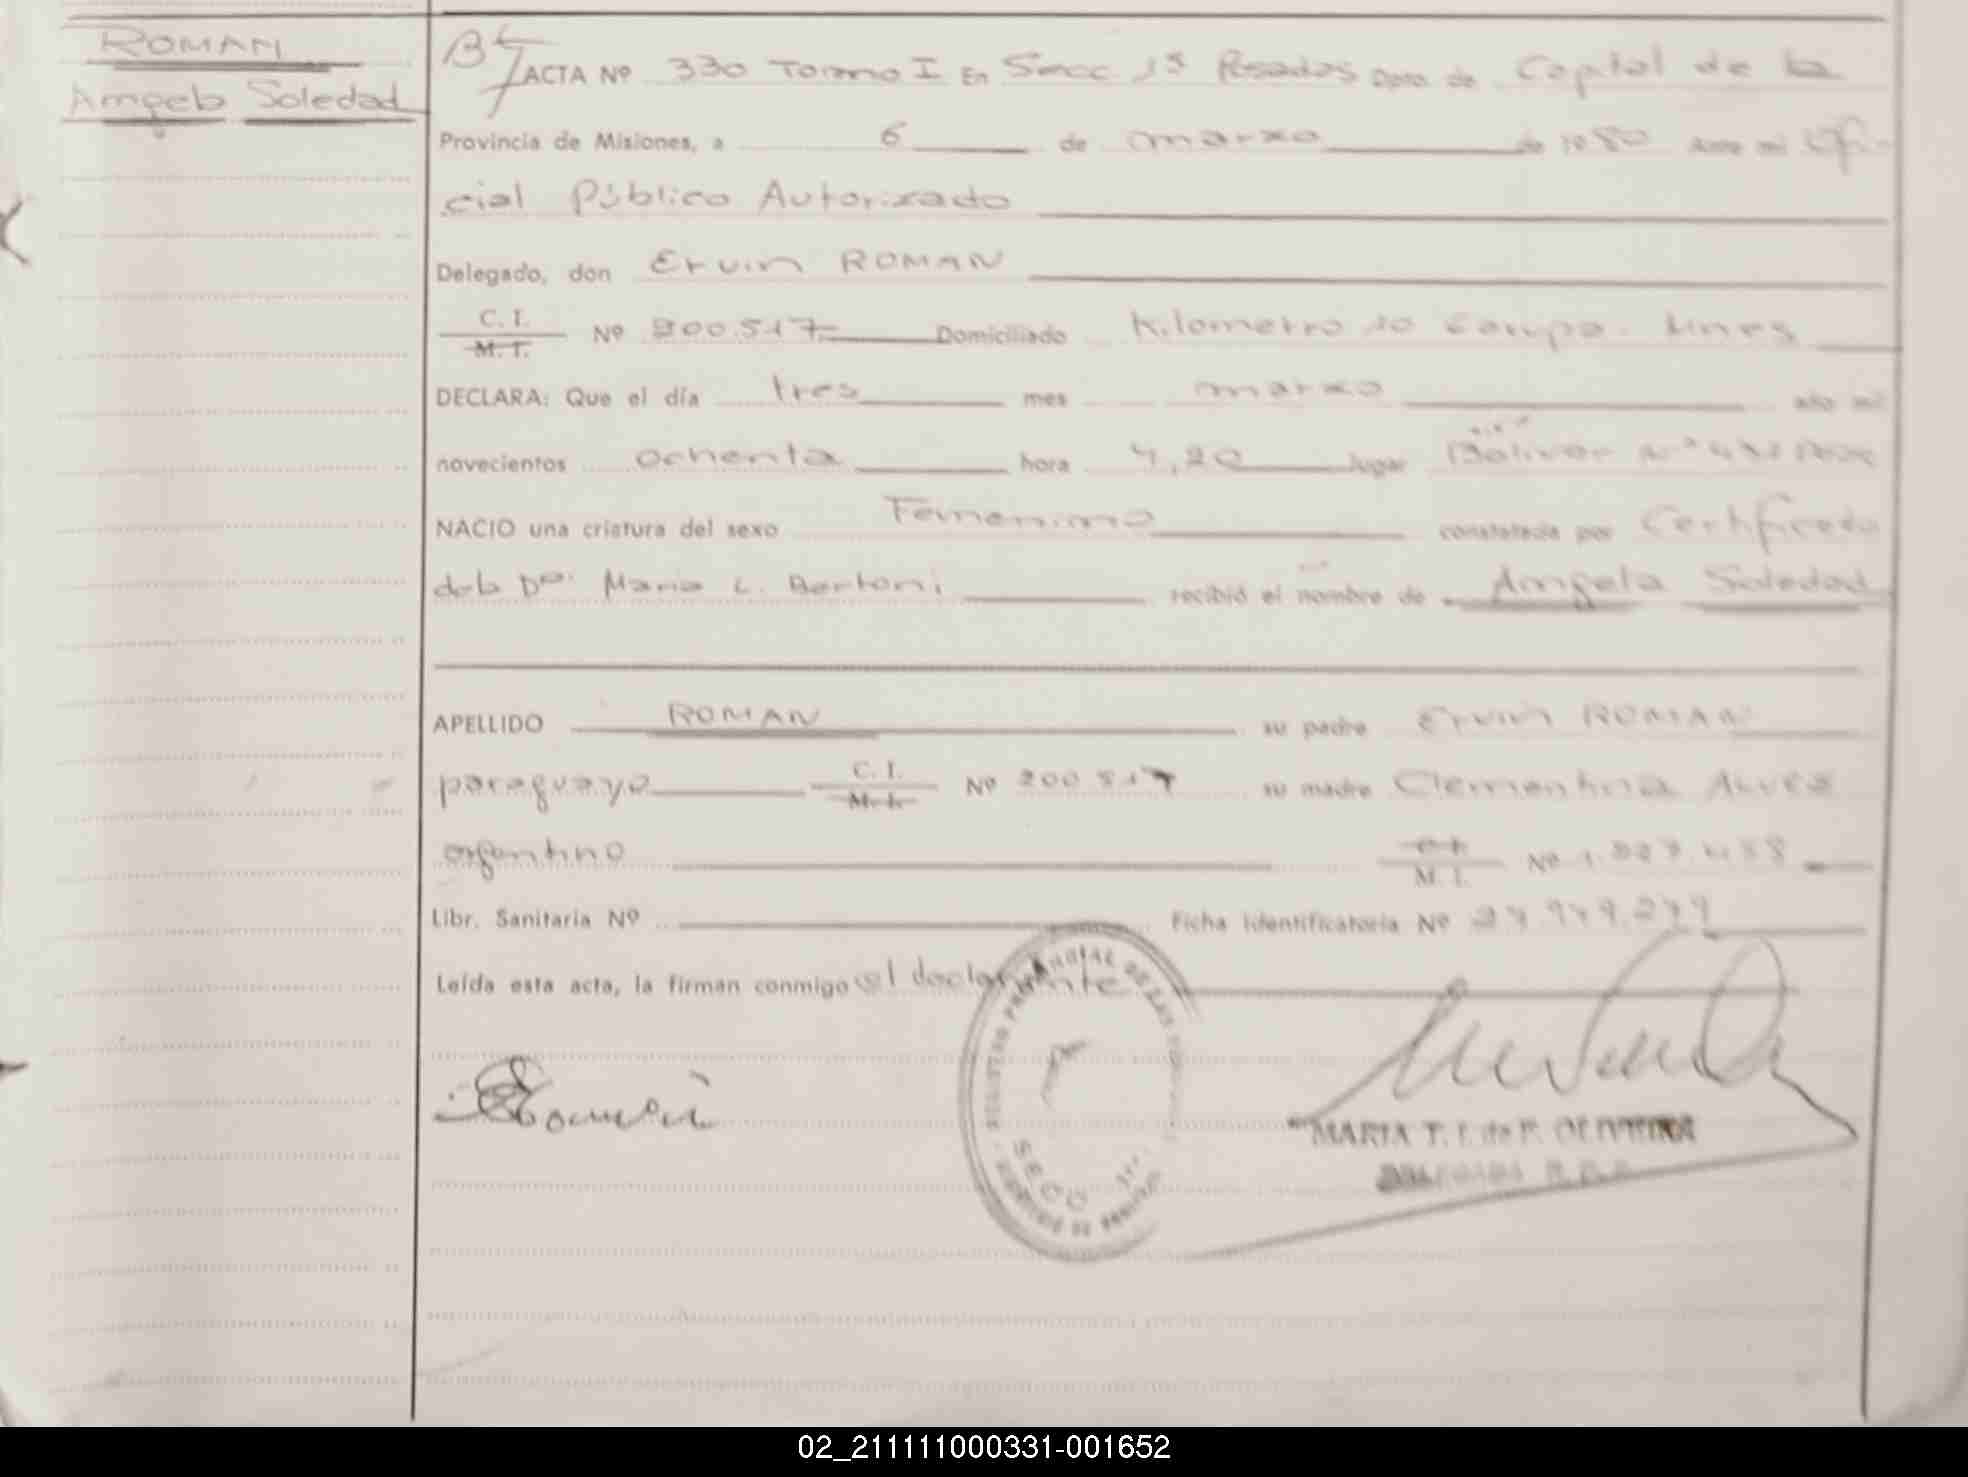 ROMAN
Angela Soledad
ACTA Nº 330 Tomo I En Secc 1ª Posadas Dpto. de Capital de la
Provincia de Misiones, a 6 de marzo de 1980 Ante mi Ofi-
cial Público Autorizado
Delegado, don Ervin ROMAN
C. I.
M. I.
Nº 200.517 Domiciliado Kilometro 10 Campo
DECLARA: Que el día tres mes marzo año mil
novecientos ochenta hora 4,20 lugar Bolivar Nº
NACIO una criatura del sexo Femenino constatada por Certificado
de la Dra. Maria L. Bertoni recibió el nombre de Angela Soledad
APELLIDO ROMAN su padre Ervin ROMAN
paraguayo C. I.
M. I.
Nº 200 517 su madre Clementina Alves
argentino C. I.
M. I.
Nº
Libr. Sanitaria Nº Ficha Identificatoria Nº 27.949.279
Leída esta acta, la firman conmigo el declarante
REGISTRO PROVINCIAL DE LAS
SECC 1ª
MARIA T. OLIVEIRA
02_211111000331-001652